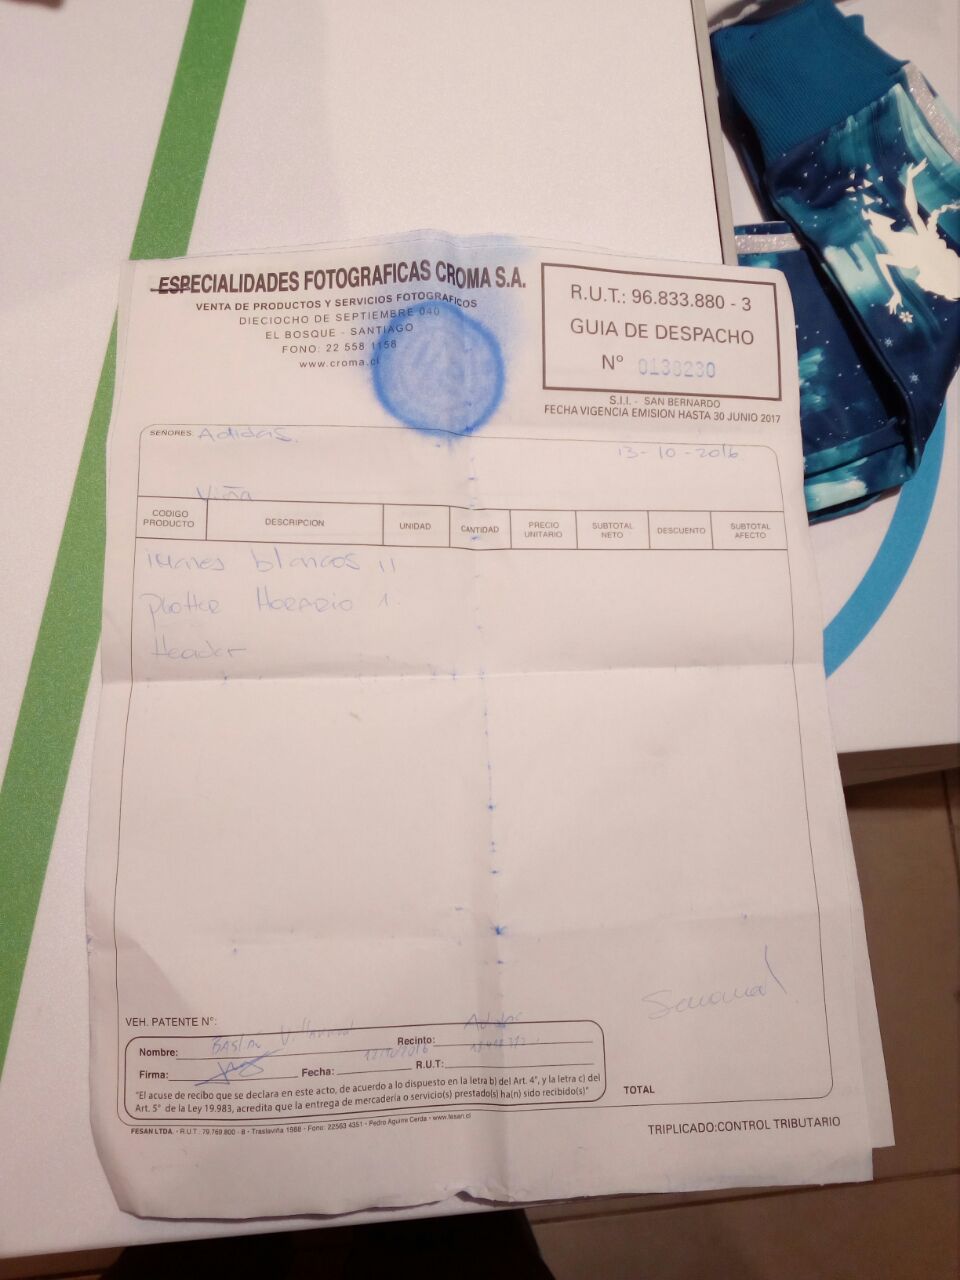 ESPECIALIDADES FOTOGRAFICAS CROMA S.A.
VENTA DE PRODUCTOS Y SERVICIOS FOTOGRAFICOS
DIECIOCHO DE SEPTIEMBRE 040
EL BOSQUE - SANTIAGO
FONO: 22 558 1158
www.croma.cl
R.U.T.: 96.833.880 - 3
GUIA DE DESPACHO
N° 0138230
S.I.I. - SAN BERNARDO
FECHA VIGENCIA EMISION HASTA 30 JUNIO 2017
SEÑORES: Adidas.
13-10-2016
Viña
CODIGO PRODUCTO DESCRIPCION UNIDAD CANTIDAD PRECIO UNITARIO SUBTOTAL NETO DESCUENTO SUBTOTAL AFECTO
imanes blancos 11
plotter Horario 1.
Header
Semanal
VEH. PATENTE N°:
Nombre: Bastian Recinto: Adidas
Firma: Fecha: R.U.T.:
"El acuse de recibo que se declara en este acto, de acuerdo a lo dispuesto en la letra b) del Art. 4°, y la letra c) del
Art. 5° de la Ley 19.983, acredita que la entrega de mercadería o servicio(s) prestado(s) ha(n) sido recibido(s)"
TOTAL
FESAN LTDA. - R.U.T.: 79.769.800 - 8 - Traslaviña 1988 - Fono: 22563 4351 - Pedro Aguirre Cerda - www.fesan.cl
TRIPLICADO:CONTROL TRIBUTARIO